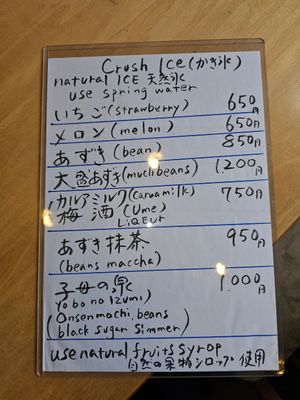 Crush Ice (かき氷)
natural ICE 天然氷
use spring water
いちご (strawberry) 650円
メロン (melon) 650円
あずき (bean) 850円
大盛あずき (muchbeans) 1,200円
カルアミルク (Caruamilk) 750円
梅酒 (Ume)
LiQEUr
あずき抹茶 950円
(beans maccha)
子母の泉 1,000円
Yobo no Izumi
(Onsenmochi, beans
black sugar simmer)
use natural fruits syrop
自然の果物シロップ使用